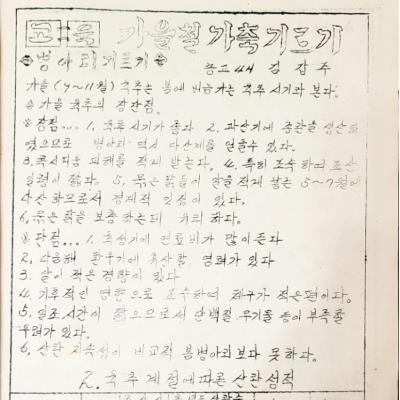 교육 가을철 가축기르기
병아리기르기 중고4H 김갑주
가을(9~11월) 육추는 봄에 버금가는 육추 시기라 본다.
가을 육추의 장단점.
※장점... 1. 육추 시기가 좋다 2. 과산기에 종란을 생산하
였으므로 병아리 역시 다산계를 얻을수 있다.
3. 콕시듐 피해를 적게 받는다. 4. 특히 조숙하여 초산
일령이 짧다. 5. 묵은 닭들이 알을 적게 낳는 5~7월에
다산하므로서 경제적 잇점이 있다.
6. 묵은 닭을 보충하는데 하다.
※단점... 1. 추성기에 연료비가 많이 든다
2. 환우기에 염려가 있다
3. 알이 적은 경향이 있다
4. 기후적인 영향으로 조숙하여 체구가 적은편이다.
5. 일조시간이 짧으므로서 단백질 무기물 등이 부족할
우려가 있다.
6. 산란 지속성이 비교적 봄병아리보다 못하다.
2. 육추계절에 따른 산란성적